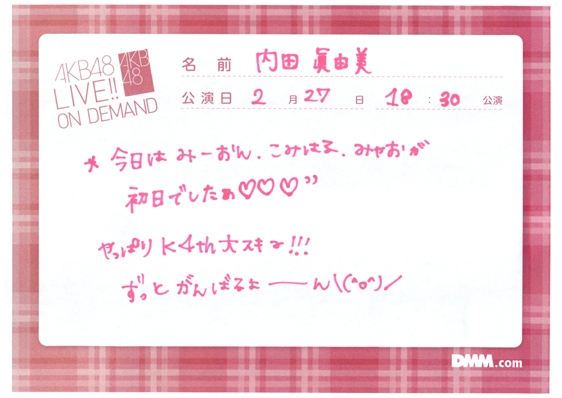 AKB48
LIVE!!
ON DEMAND
AKB
48
名 前 内田 眞由美
公演日 2 月 27 日 18 : 30 公演
* 今日は みーおん. こみはる. みゃおが
初日でしたぁ♡♡♡"
やっぱり K4th大スキョ!!!
ずっと がんばるょ――ん\(^o^)/
DMM.com